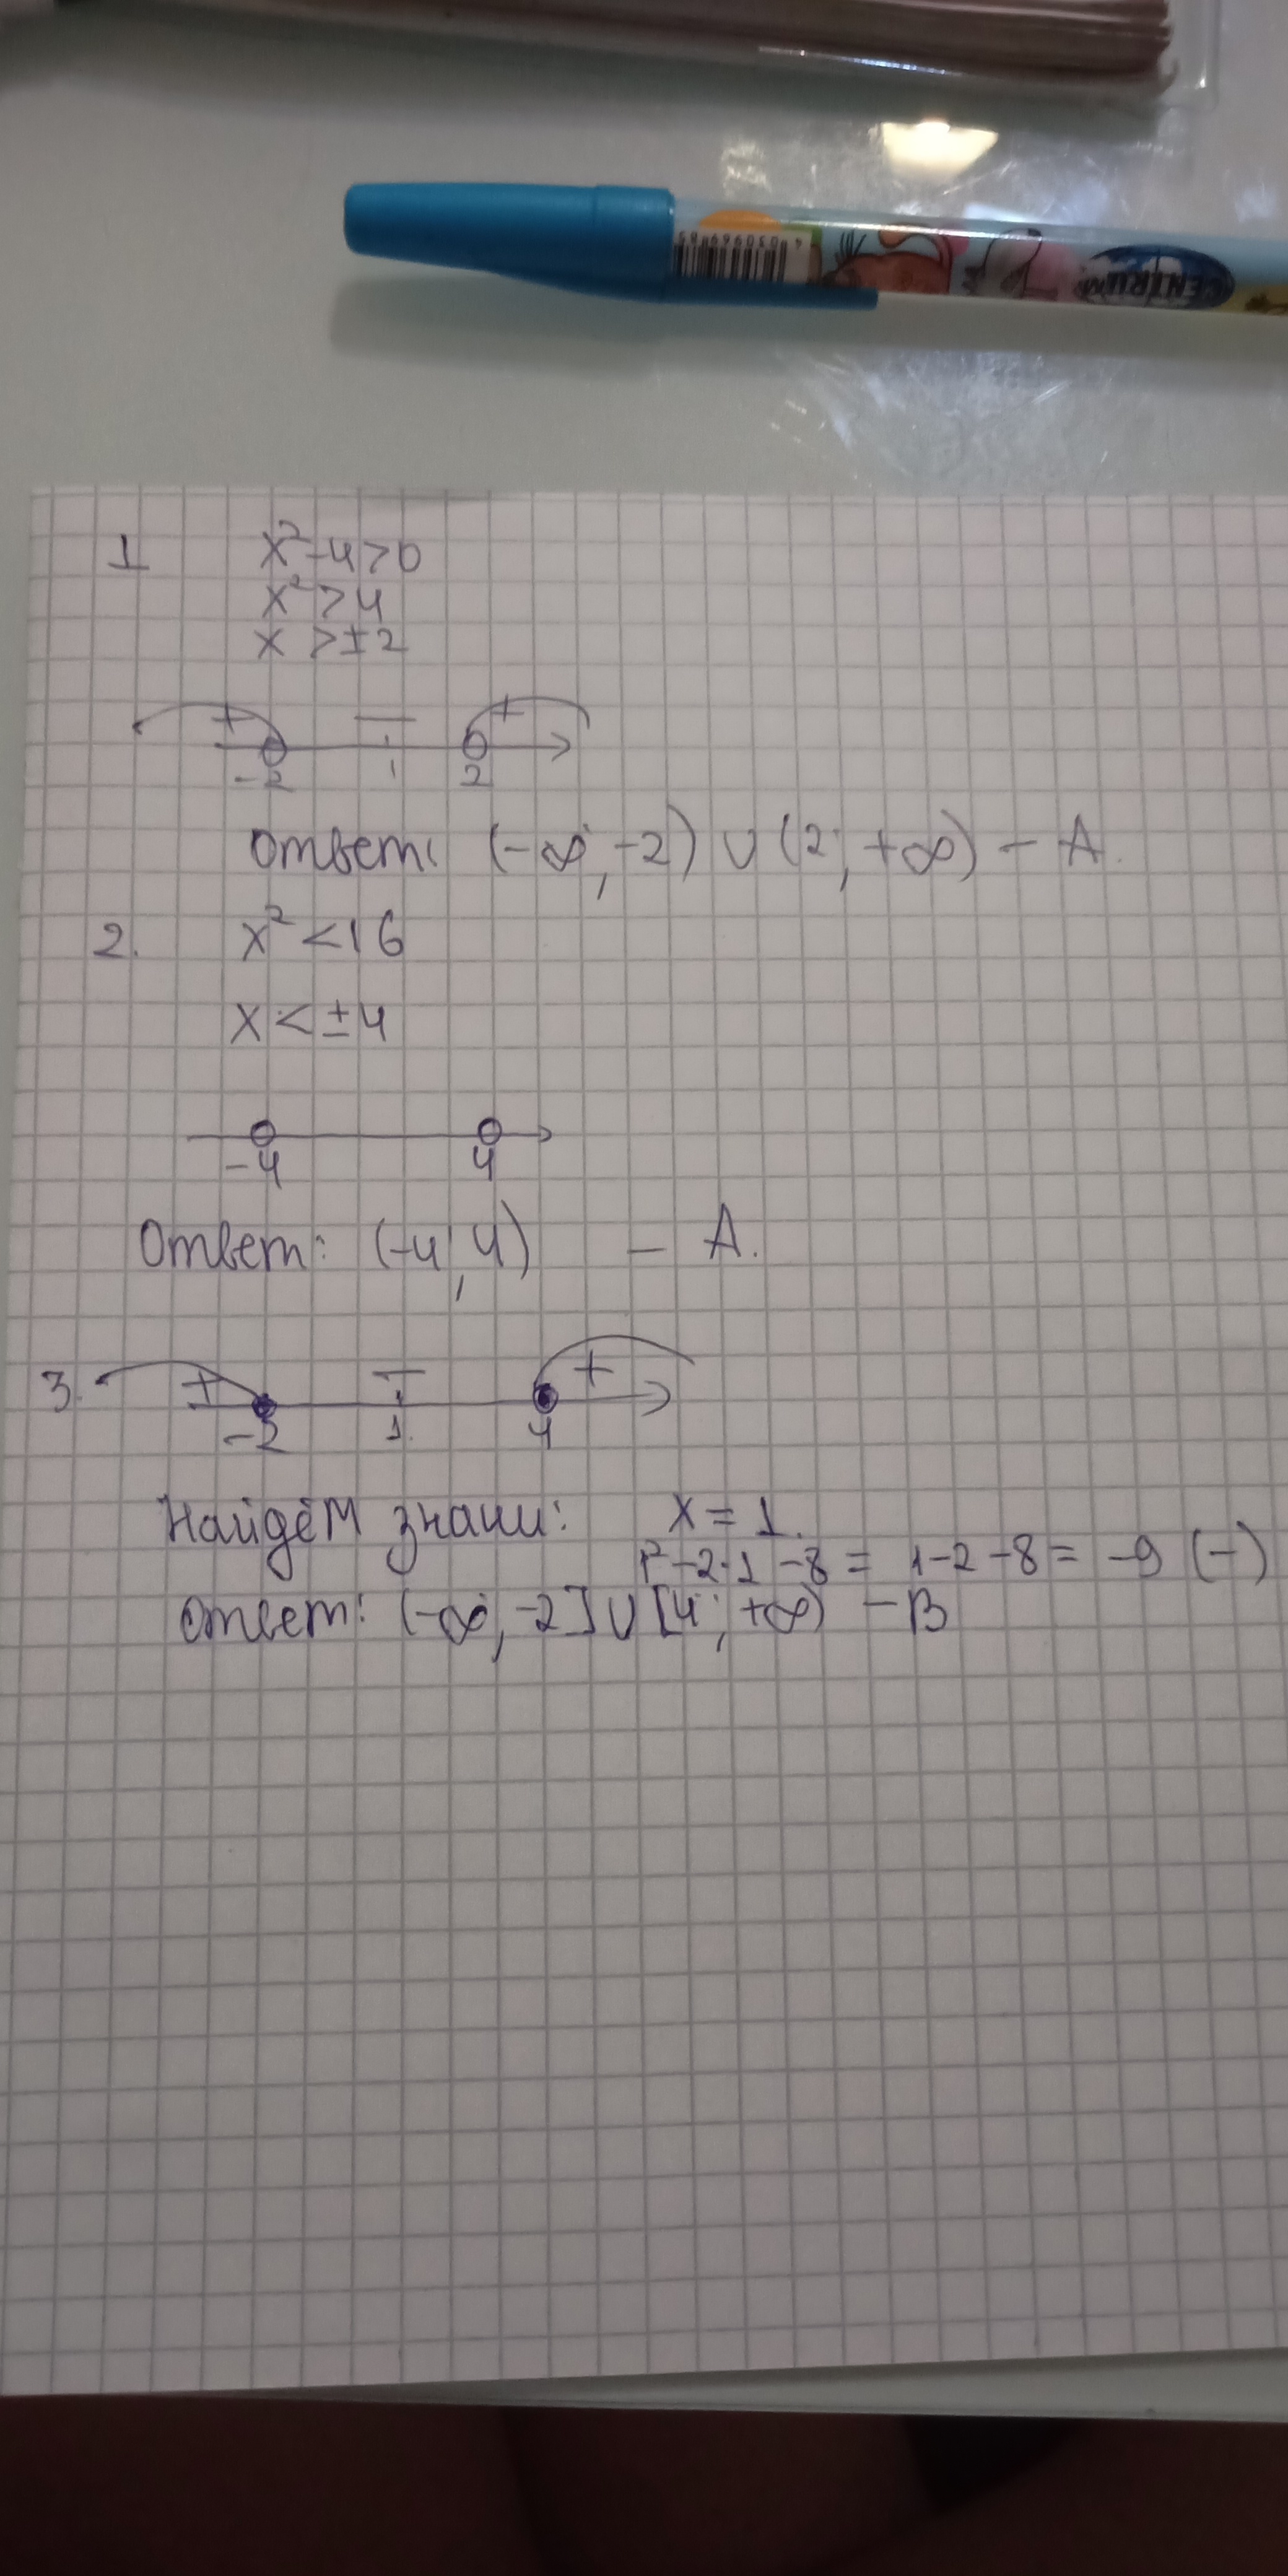 CENTRUM
1 x²-4>0
x²>4
x >±2
+ — +
-2 1 2
Ответ: (-∞; -2) ∪ (2; +∞) - А.
2. x² <16
x < ±4
-4 4
Ответ: (-4; 4) - А.
3. + - +
-2 1. 4
Найдём знаки: x = 1.
1²-2·1-8 = 1-2-8 = -9 (-)
Ответ: (-∞; -2]∪[4; +∞) - В